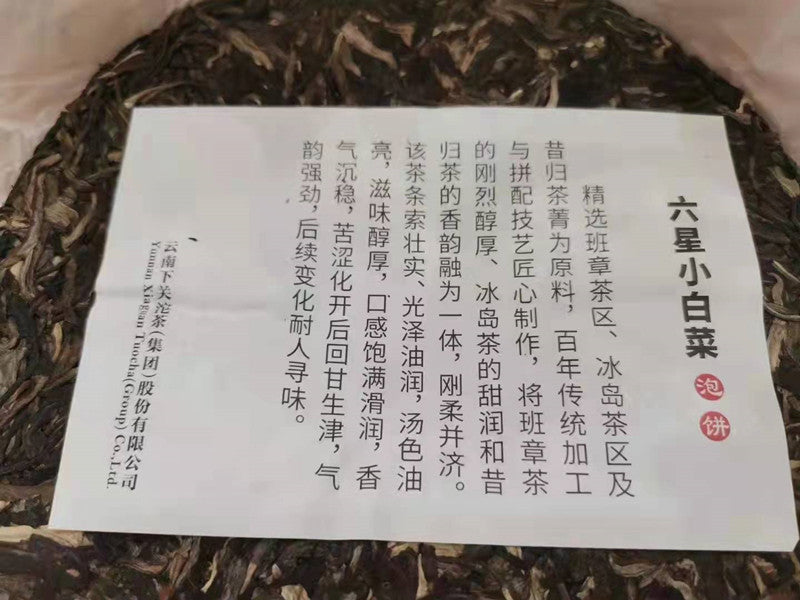 六星小白菜 泡饼
精选班章茶区、冰岛茶区及
昔归茶菁为原料，百年传统加工
与拼配技艺匠心制作，将班章茶
的刚烈醇厚、冰岛茶的甜润和昔
归茶的香韵融为一体，刚柔并济。
该茶条索壮实、光泽油润，汤色油
亮，滋味醇厚，口感饱满滑润，香
气沉稳，苦涩化开后回甘生津，气
韵强劲，后续变化耐人寻味。
云南下关沱茶（集团）股份有限公司
Yunnan Xiaguan Tuocha(Group) Co.,Ltd.